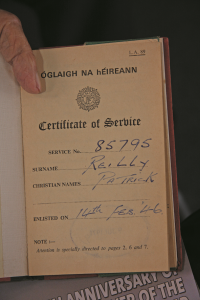 L.A. 89
ÓGLAIGH NA hÉIREANN
Certificate of Service
SERVICE No. 85795
SURNAME Reilly
CHRISTIAN NAMES PATRICK
ENLISTED ON 14th FEB '46
NOTE :—
Attention is specially directed to pages 2, 6 and 7.
ANNIVERSARY OF
ER OF THE